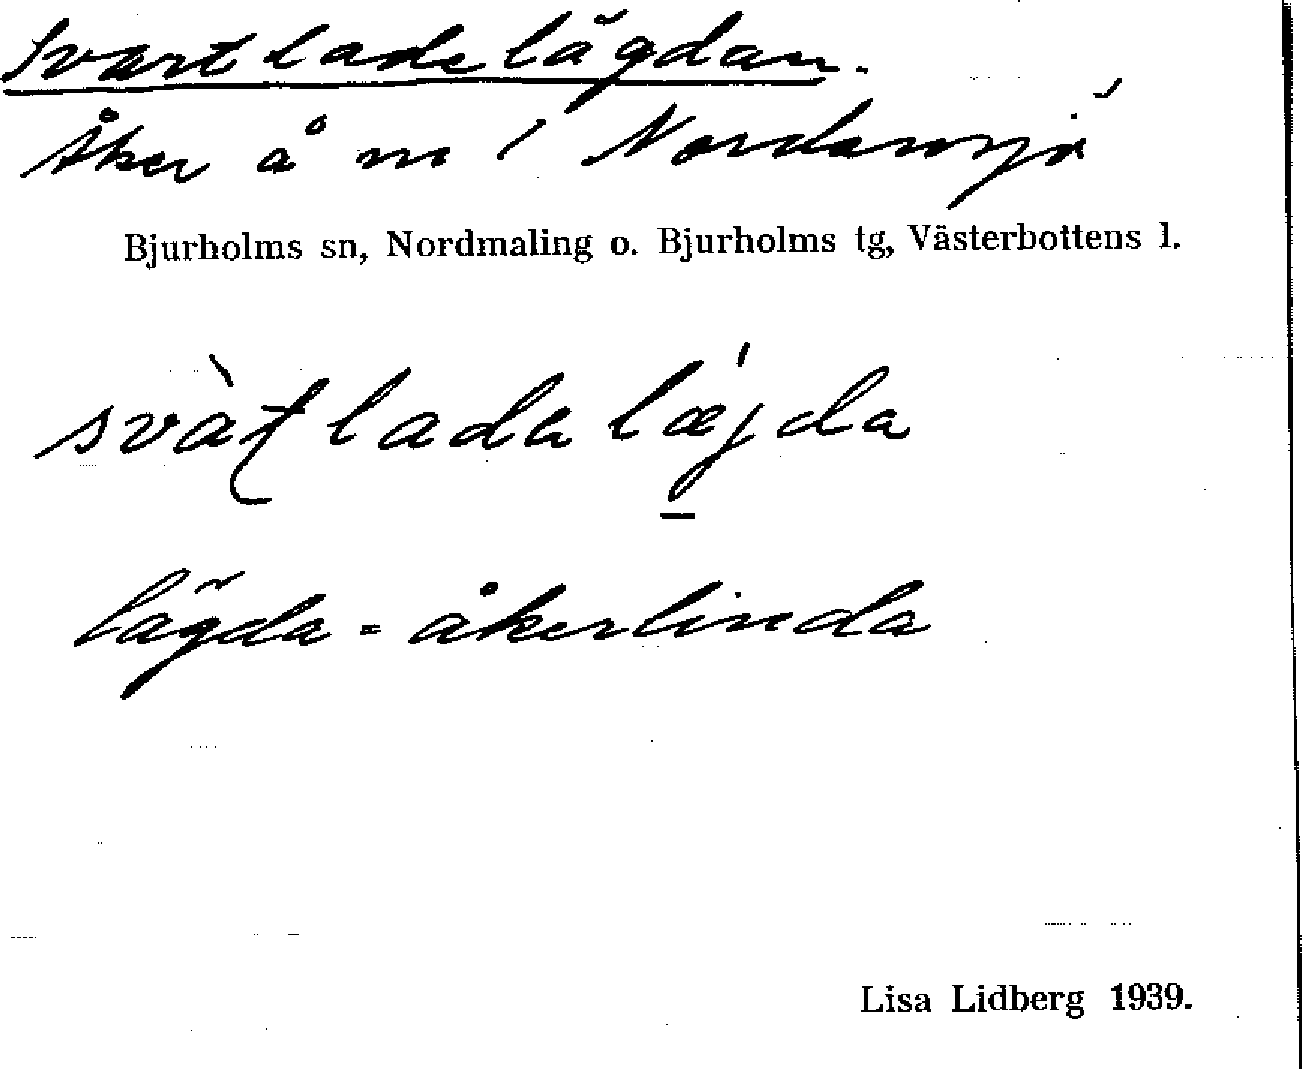 Svartladelägdan.
Åker å nr 1 Nordansjö
Bjurholms sn, Nordmaling o. Bjurholms tg, Västerbottens l.
svàʈladalǽjda
lägda = åkerlinda
Lisa Lidberg 1939.